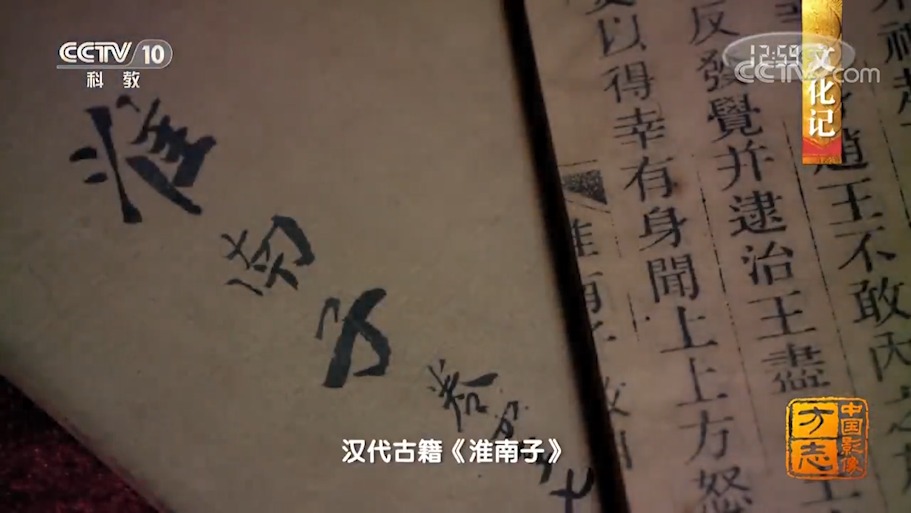 CCTV 10
科教
12:59
CCTV.com
文化记
淮南子
反發覺并逮治王盡
以得幸有身聞上上方怒
趙王不敢內之
汉代古籍《淮南子》
中国影像
方志